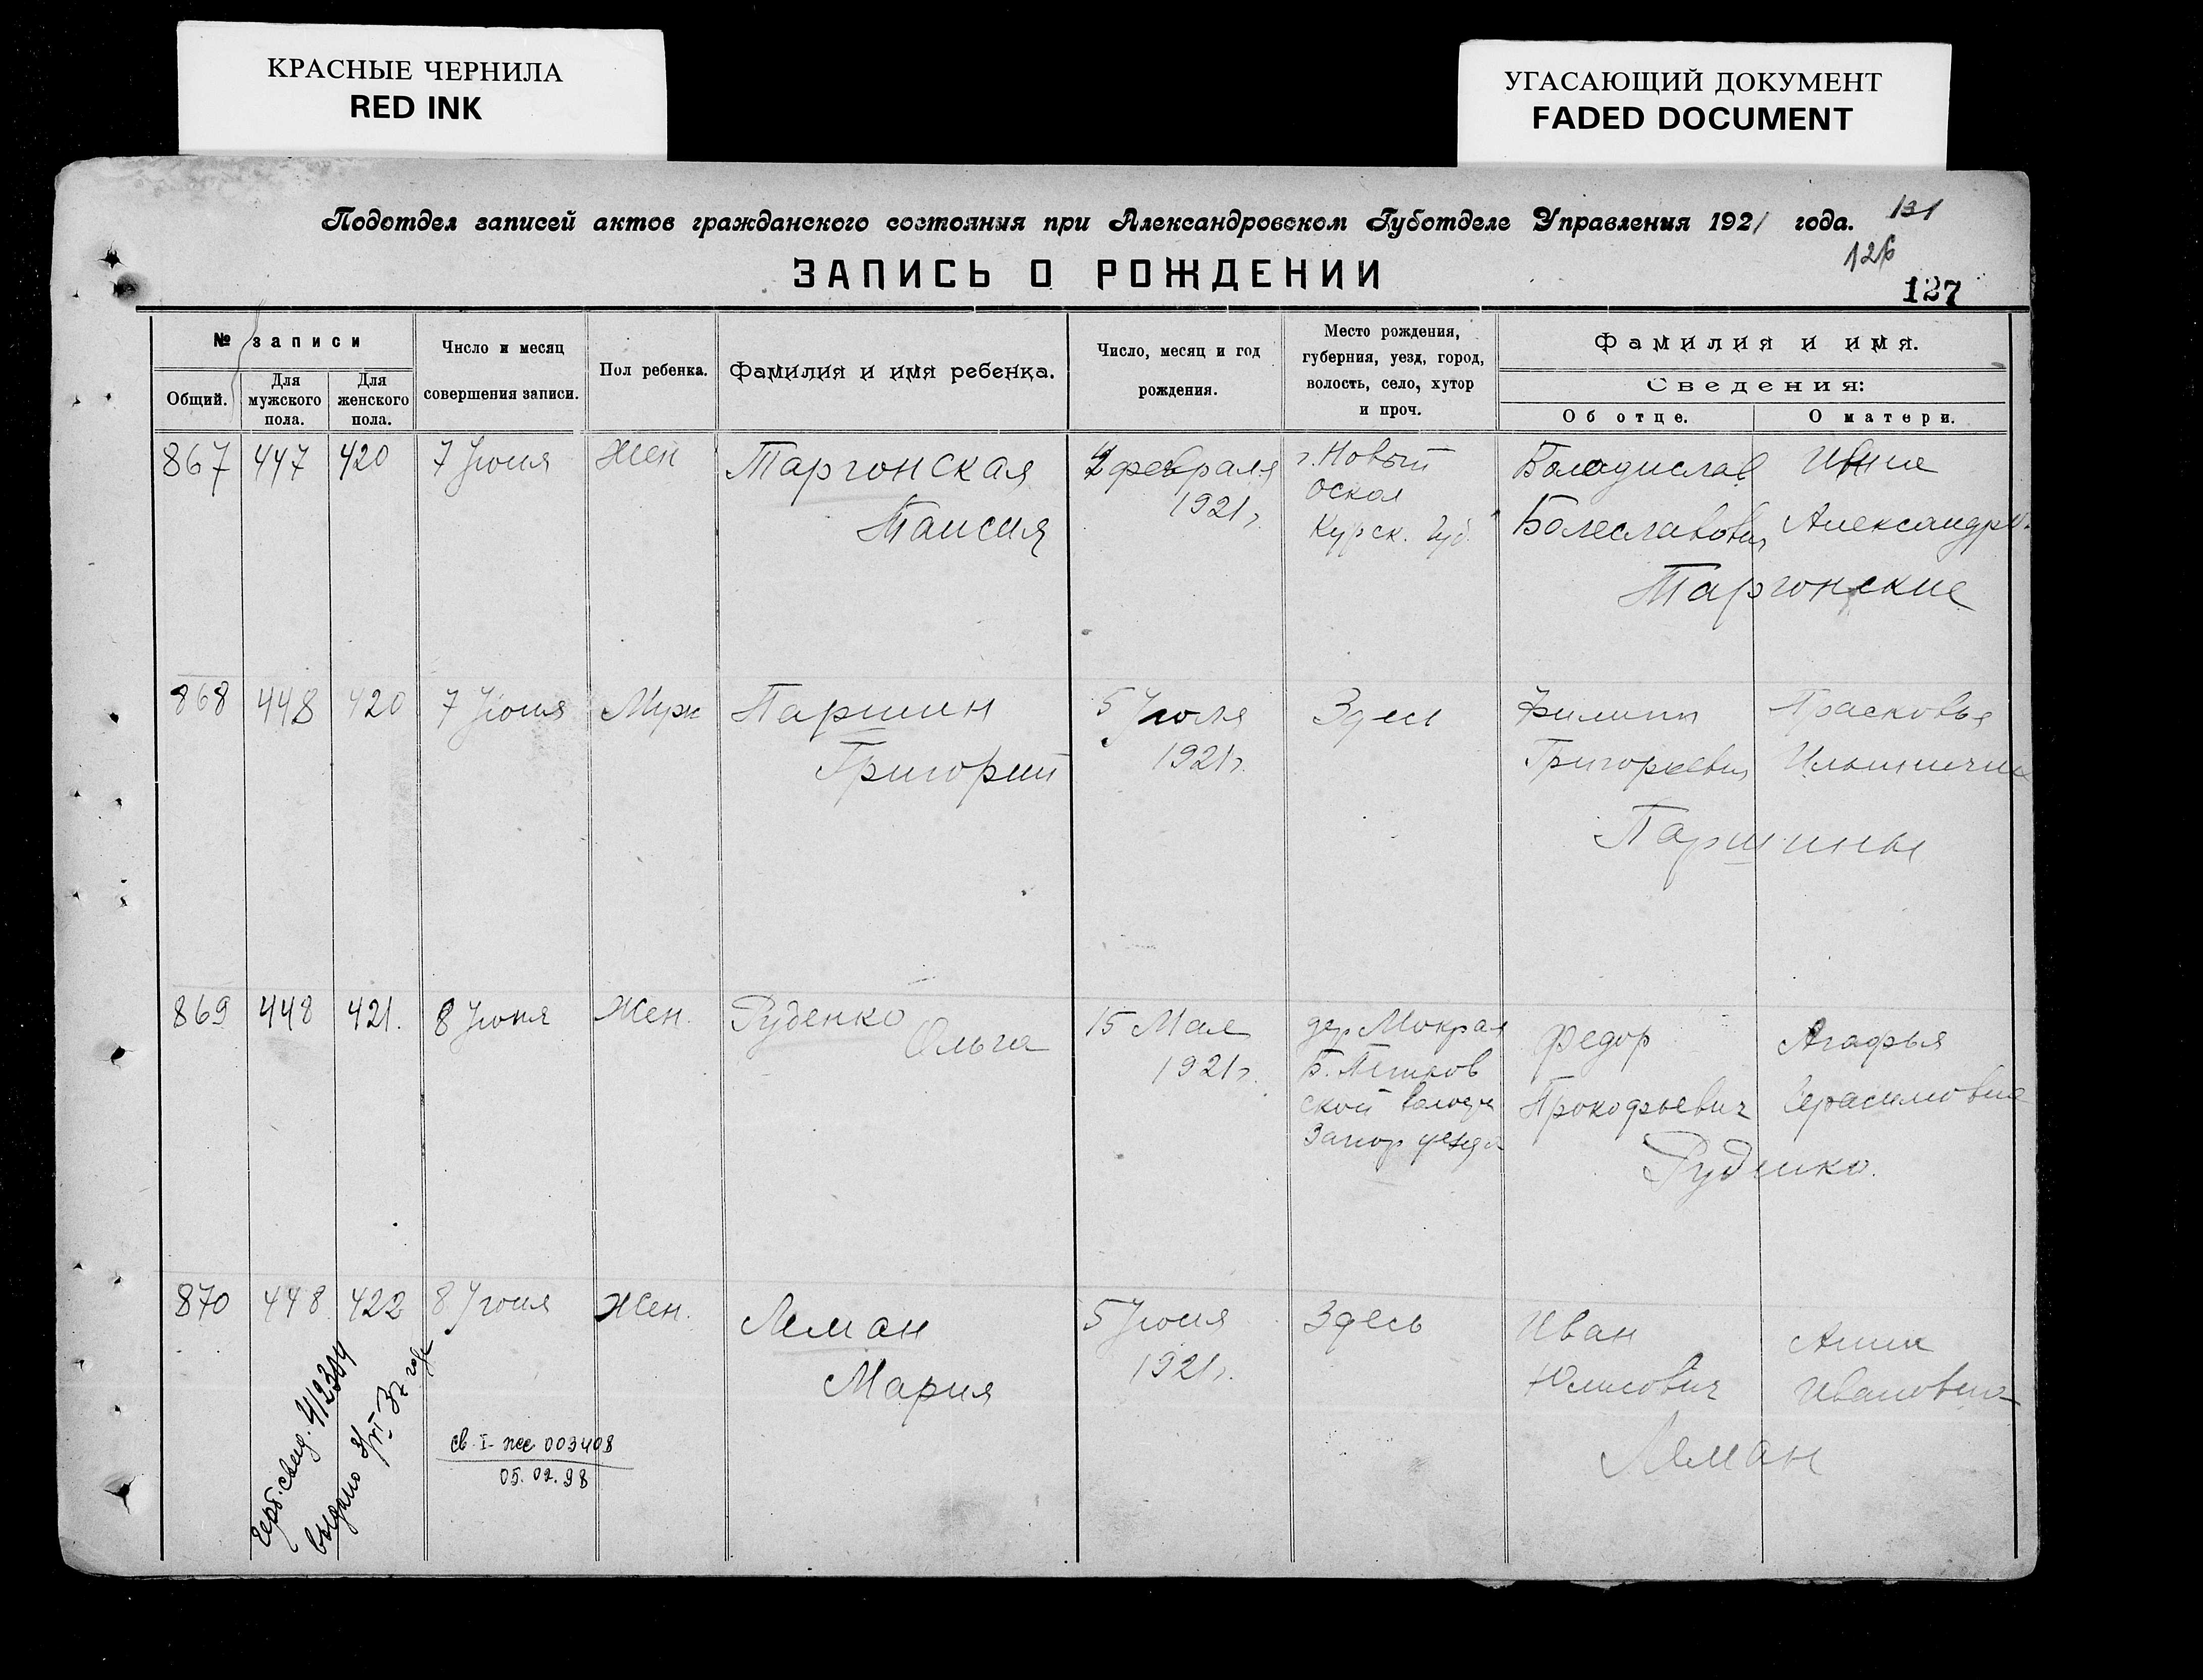 КРАСНЫЕ ЧЕРНИЛА
RED INK
УГАСАЮЩИЙ ДОКУМЕНТ
FADED DOCUMENT
Подотдел записей актов гражданского состояния при Александровском Губотделе Управления 1921 года.
131
126
127
ЗАПИСЬ О РОЖДЕНИИ
№ записи
Общий.
Для мужского пола.
Для женского пола.
Число и месяц
совершения записи.
Пол ребенка.
Фамилия и имя ребенка.
Число, месяц и год
рождения.
Место рождения,
губерния, уезд, город,
волость, село, хутор
и проч.
Фамилия и имя.
Сведения:
Об отце.
О матери.
867 447 420 7 Июня Жен Таргонская
Таисия
2 февраля
1921 г.
г. Новый
Оскол
Курск. Губ.
Болеславович
Александр.
Таргонские
868 448 420 7 Июня Муж Паршин
Григорий
5 Июля
1921 г.
Здесь
Филипп
Григорьевич
Прасковья
Паршины
869 448 421. 8 Июня Жен. Руденко
Ольга
15 Мая
1921 г.
дер. Мокрая
ской волости
Запор уезда
Федор
Прокофьевич
Агафья
Герасимовна
Руденко.
870 448 422 8 Июня Жен. Леман
Мария
5 Июня
1921 г.
Здесь
Иван
Юлисович
Анна
Ивановна
Леман
герб. свид. 412304
выдано
св. I-
003408
05.02.98